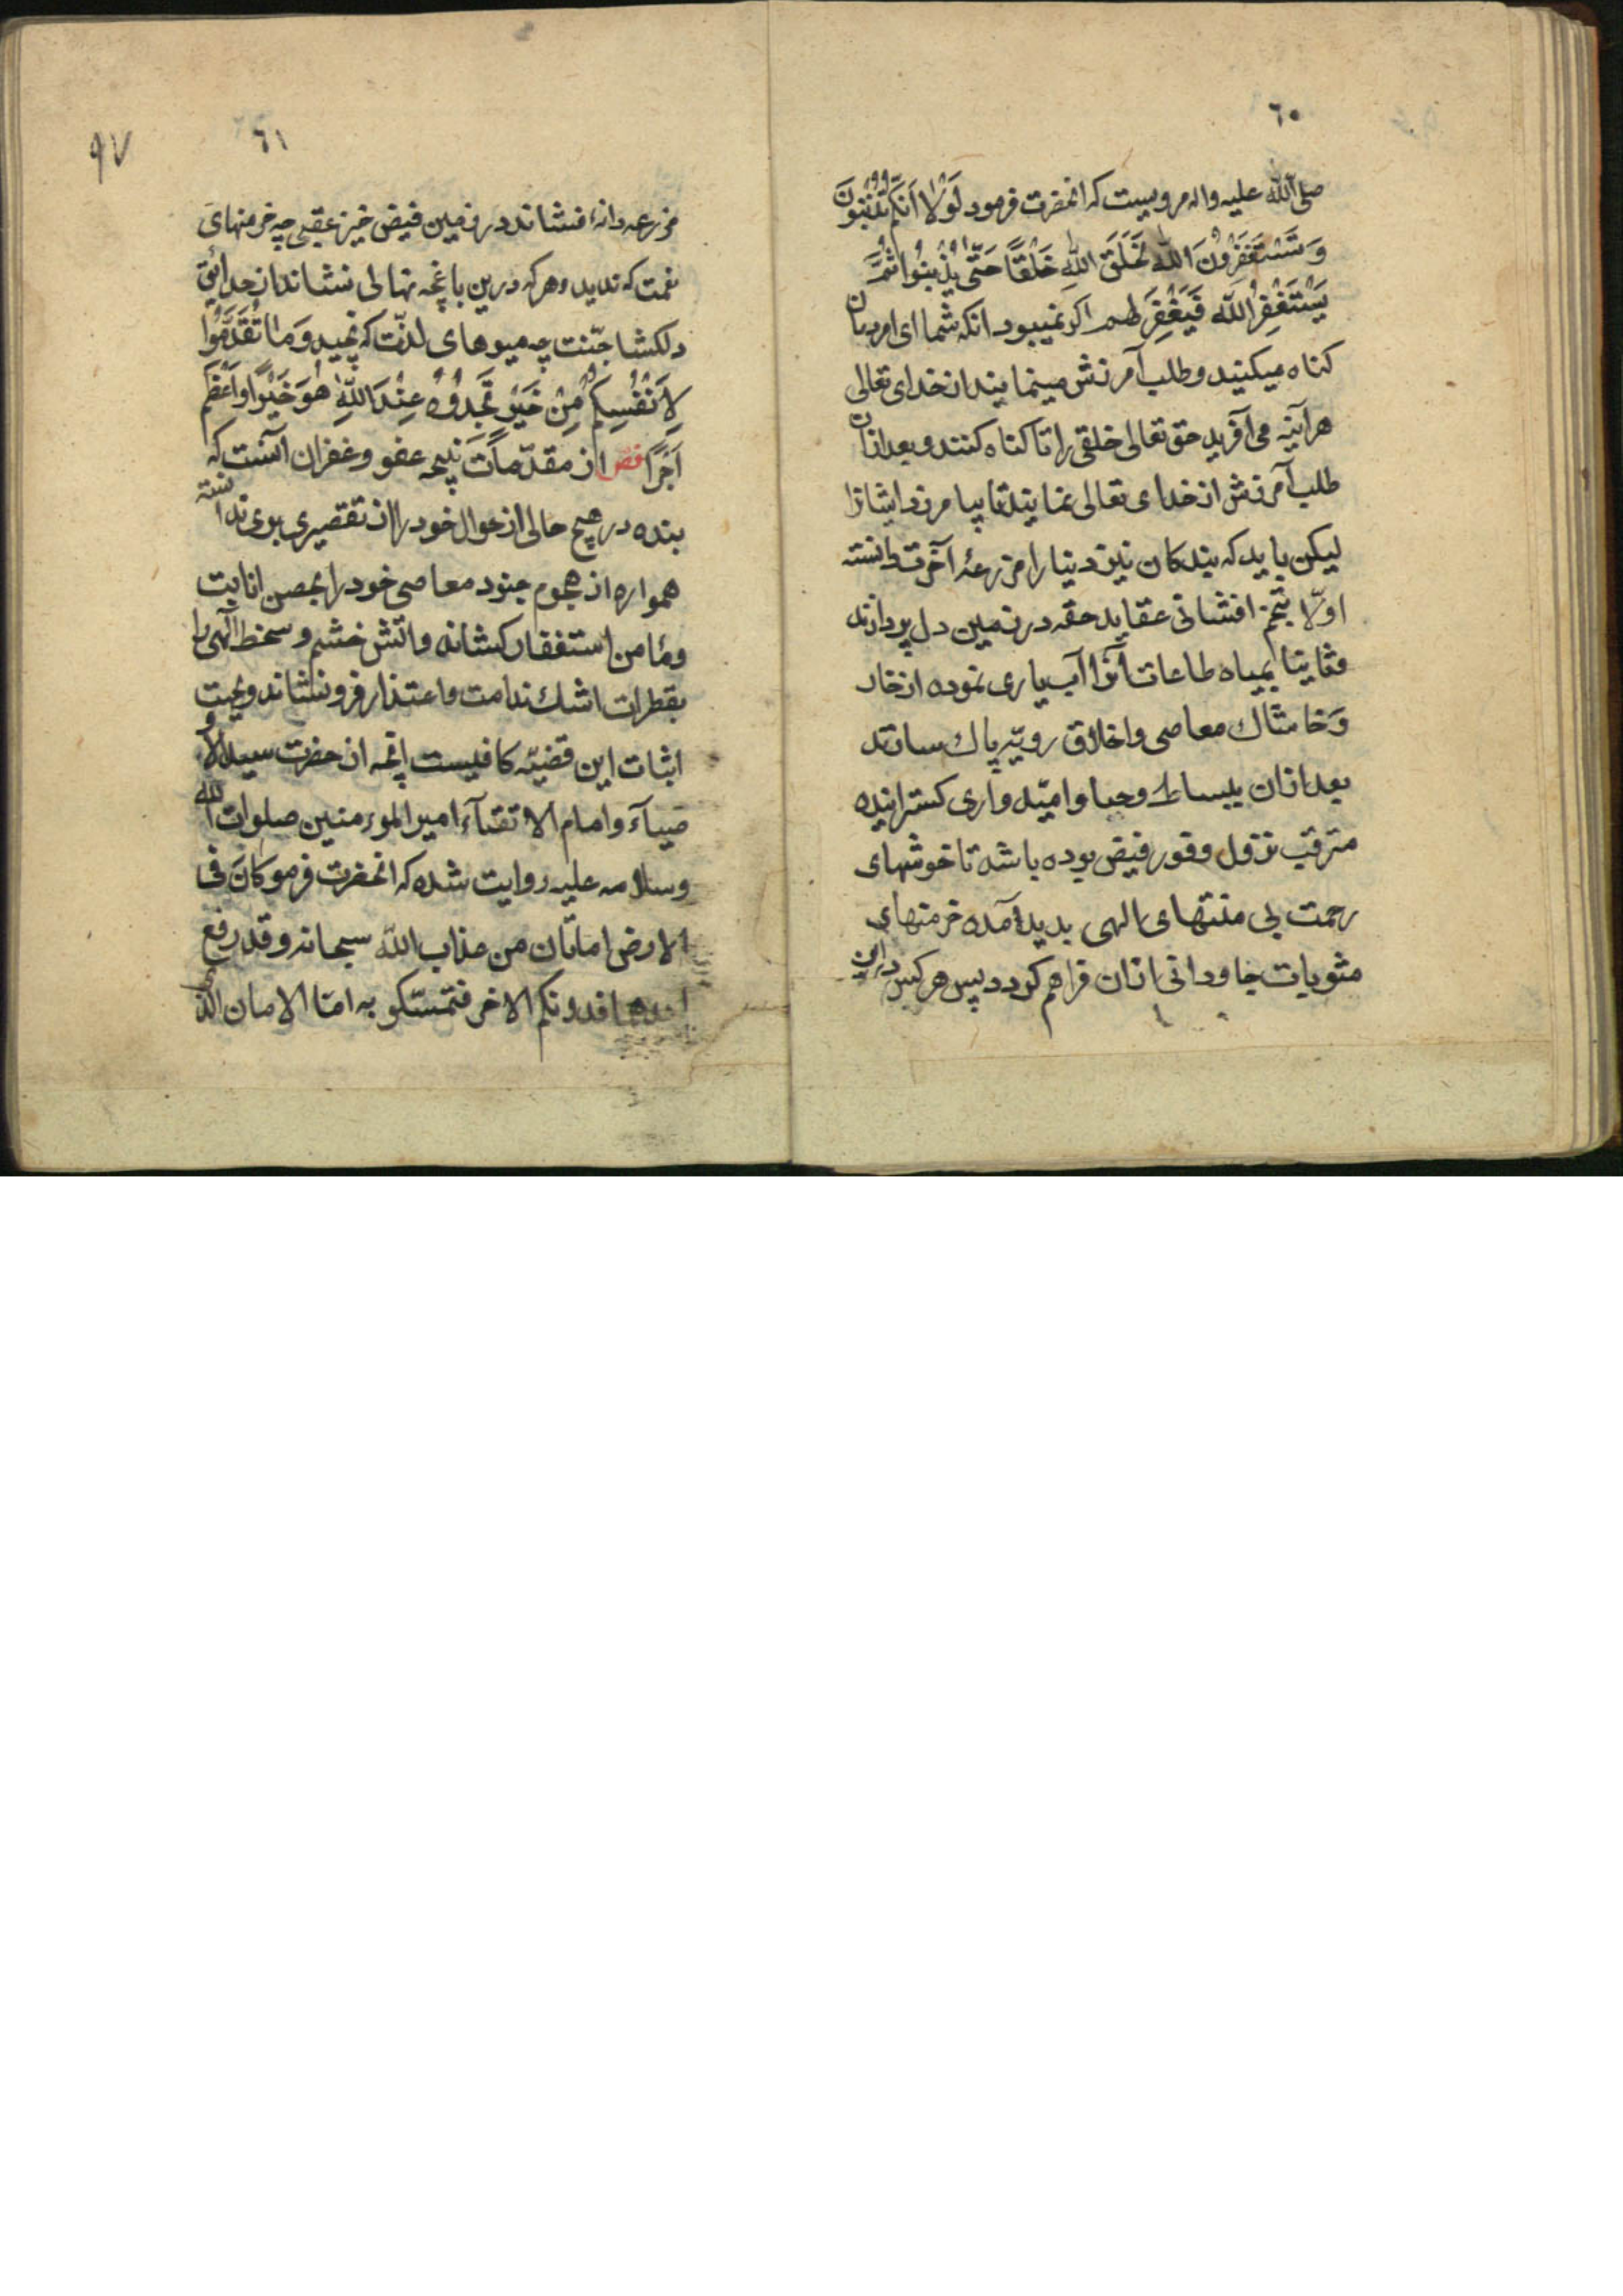 ٦٠
صلی الله علیه واله مرویست که انحضرت فرمود لَوْلا اَنَّکُمْ تُذْنِبُونَ
وَتَسْتَغْفِرُونَ اللّهَ لَخَلَقَ اللّهُ خَلْقًا حَتّی یُذْنِبُوا ثُمَّ
یَسْتَغْفِرُ اللّه فَیَغْفِرَ لهم اکر نمیبود انکه شما ای
کناه میکنید و طلب آمرزش مینمایند از خدای تعالی
هر آینه می آفرید حق تعالی خلقی را تا کناه کنند و بعد ازان
طلب آمرزش از خدای تعالی نمایند تا بیامرزد ایشانرا
لیکن باید که بندکان نیز دنیا را مزرعهٔ آخرت دانسته
اولّا بتخم افشانی عقاید حقه در زمین دل پردازند
وثانیا بمیاه طاعات آنرا آب یاری نموده از خار
وَخاشاك معاصی واخلاق رویّه پاك سازند
بعد ازان بیساط وحبا وامیّدواری کسترانیده
مترقب نزول وفور فیض بوده باشد تا خوشهای
رحمت بی منتهای الهی بدید آمده خرمنهای
مثوبات جاودانی ازان فراهم کردد پس هر کس درین
٦١
٩٧
مزرعه دانهٔ افشاند در زمین فیض خیز عقبی چه خرمنهای
نعمت که ندید و هر که درین باغچه نهالی نشاند از حدایق
دلکشا جنّت چه میوهای لذّت که نچید وَمٰا تُقَدِّمُوا
لِاَنْفُسِکُمْ مِنْ خَیْرٍ تَجِدُوُهُ عِنْدَ اللّهِ هُوَ خَیْرًا واَعْظَمَ
اَجْرًا فص از مقدّمات نتیجه عفو وغفران آنست که
بنده در هیچ حالی از خوال خود را از تقصیری بری ندانسته
همواره از هجوم جنود معاصی خود را بحصن انابت
ومٔامن استغفار کشانه واتش خشم وسخط الهی را
بقطرات اشك ندامت واعتذار فرو نشاند وبجهت
اثبات این قضیّه کافیست انچه از حضرت سید الاو
صیآء وامام الاتقیآء امیر المومنین صلوات الله
وسلامه علیه روایت شده که انحضرت فرمو کانَ فی
الارض امانان من عذاب اللّه سبحانه وقد رفع
احدهما فدونکم الاخر فتمسّکو به امّا الامان الذی